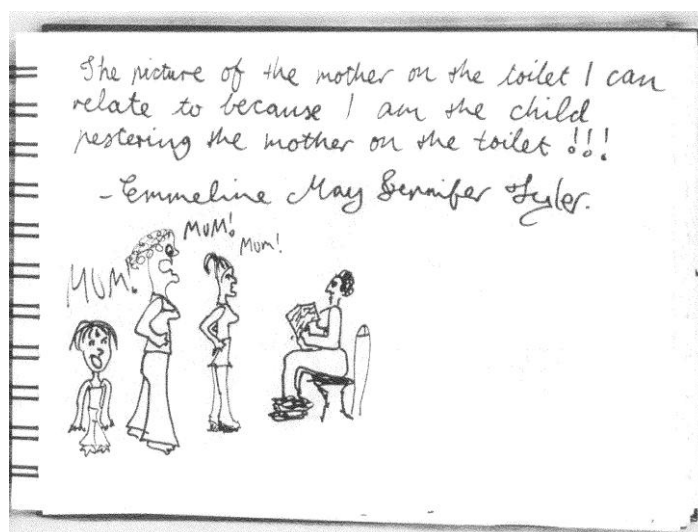 The picture of the mother on the toilet I can
relate to because I am the child
pestering the mother on the toilet!!!
- Emmeline May Jennifer Tyler.
MUM!
MUM!
Mum!